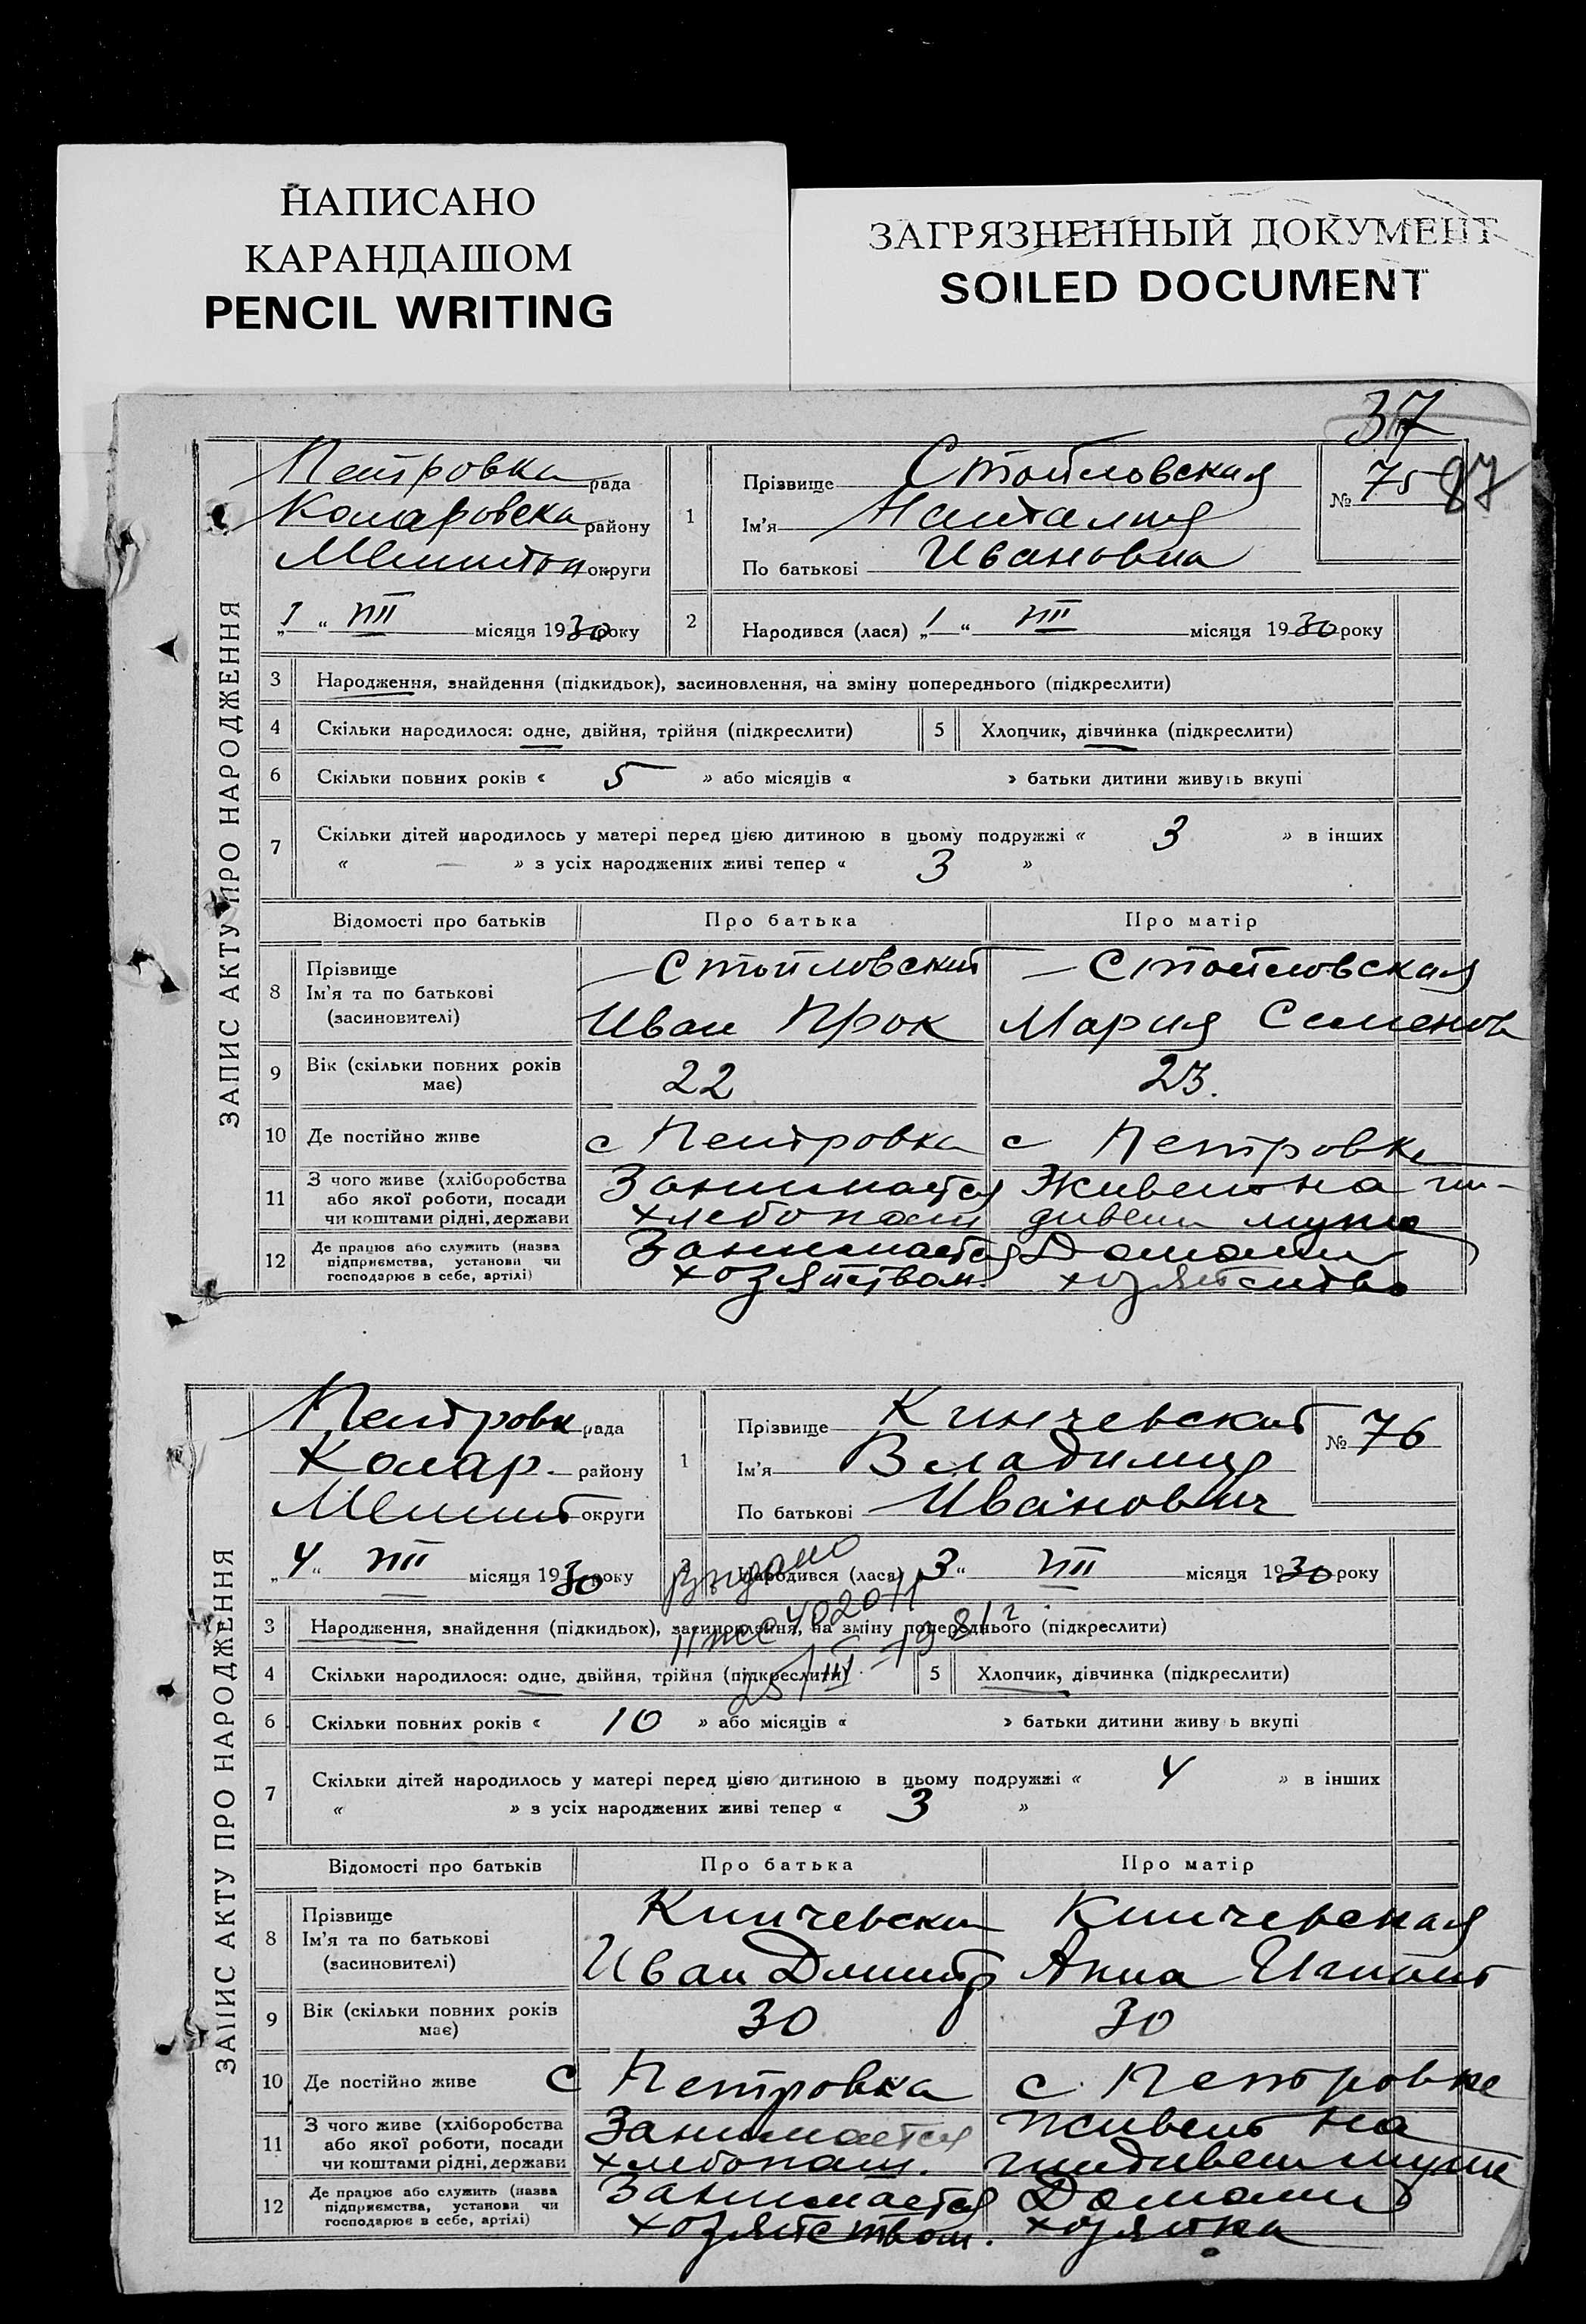 НАПИСАНО
КАРАНДАШОМ
PENCIL WRITING
ЗАГРЯЗНЕННЫЙ ДОКУМЕНТ
SOILED DOCUMENT
37
87
ЗАПИС АКТУ ПРО НАРОДЖЕННЯ
Петровка рада
района
округи
„1“ VIII місяця 1930 року
1 Прізвище Стойловская
Ім’я Наталия
По батькові Ивановна
№ 75
2 Народився (лася) „1“ VIII місяця 1930 року
3 Народження, знайдення (підкидьок), засиновлення, на зміну попереднього (підкреслити)
4 Скільки народилося: одне, двійня, трійня (підкреслити) 5 Хлопчик, дівчинка (підкреслити)
6 Скільки повних років « 5 » або місяців « » батьки дитини живуть вкупі
7 Скільки дітей народилось у матері перед цією дитиною в цьому подружжі « 3 » в інших
« — » з усіх народжених живі тепер « 3 »
Відомості про батьків Про батька Про матір
8 Прізвище
Ім’я та по батькові
(засиновителі)
Стойловский
Иван Прок
Стойловская
Мария Семенов
9 Вік (скільки повних років має) 22 23.
10 Де постійно живе с Петровка с Петровке
11 З чого живе (хліборобства
або якої роботи, посади
чи коштами рідні, держави
Занимается
хлебопаш
Живет на и-
дивени мужа
12 Де працює або служить (назва
підприємства, установи чи
господарює в себе, артілі)
Занимается
хозяйством.
Домашн
хозяйство
ЗАПИС АКТУ ПРО НАРОДЖЕННЯ
Петровк рада
Комар. району
округи
„4“ VIII місяця 1930 року
1 Прізвище Кинчевский
Ім’я Владимир
По батькові Иванович
№ 76
2 Народився (лася) „3“ VIII місяця 1930 року
Выдано
402011
25/III - 1981 г
3 Народження, знайдення (підкидьок), засиновлення, на зміну попереднього (підкреслити)
4 Скільки народилося: одне, двійня, трійня (підкреслити) 5 Хлопчик, дівчинка (підкреслити)
6 Скільки повних років « 10 » або місяців « » батьки дитини живу ь вкупі
7 Скільки дітей народилось у матері перед цією дитиною в цьому подружжі « 4 » в інших
« » з усіх народжених живі тепер « 3 »
Відомості про батьків Про батька Про матір
8 Прізвище
Ім’я та по батькові
(засиновителі)
Кинчевски
Иван Дмитр
Кинчевская
Анна Игнат
9 Вік (скільки повних років має) 30 30
10 Де постійно живе с Петровка с. Петровке
11 З чого живе (хліборобства
або якої роботи, посади
чи коштами рідні, держави
Занимается
хлебопаш.
живет на
иждивени мужа
12 Де працює або служить (назва
підприємства, установи чи
господарює в себе, артілі)
Занимается
хозяйством.
Домашн
хозяйка